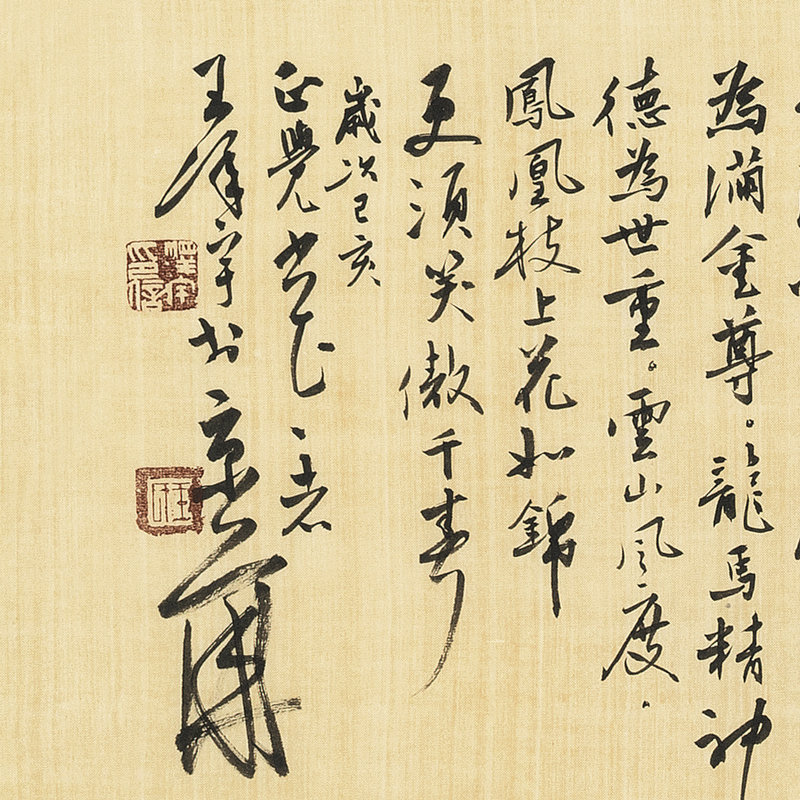 為滿金尊。龍馬精神
德為世重。雲山風度
鳳凰枝上花如錦
更須笑傲千
歲次己亥
正覺
王澤宇书京